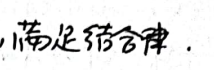 ,满足结合律.